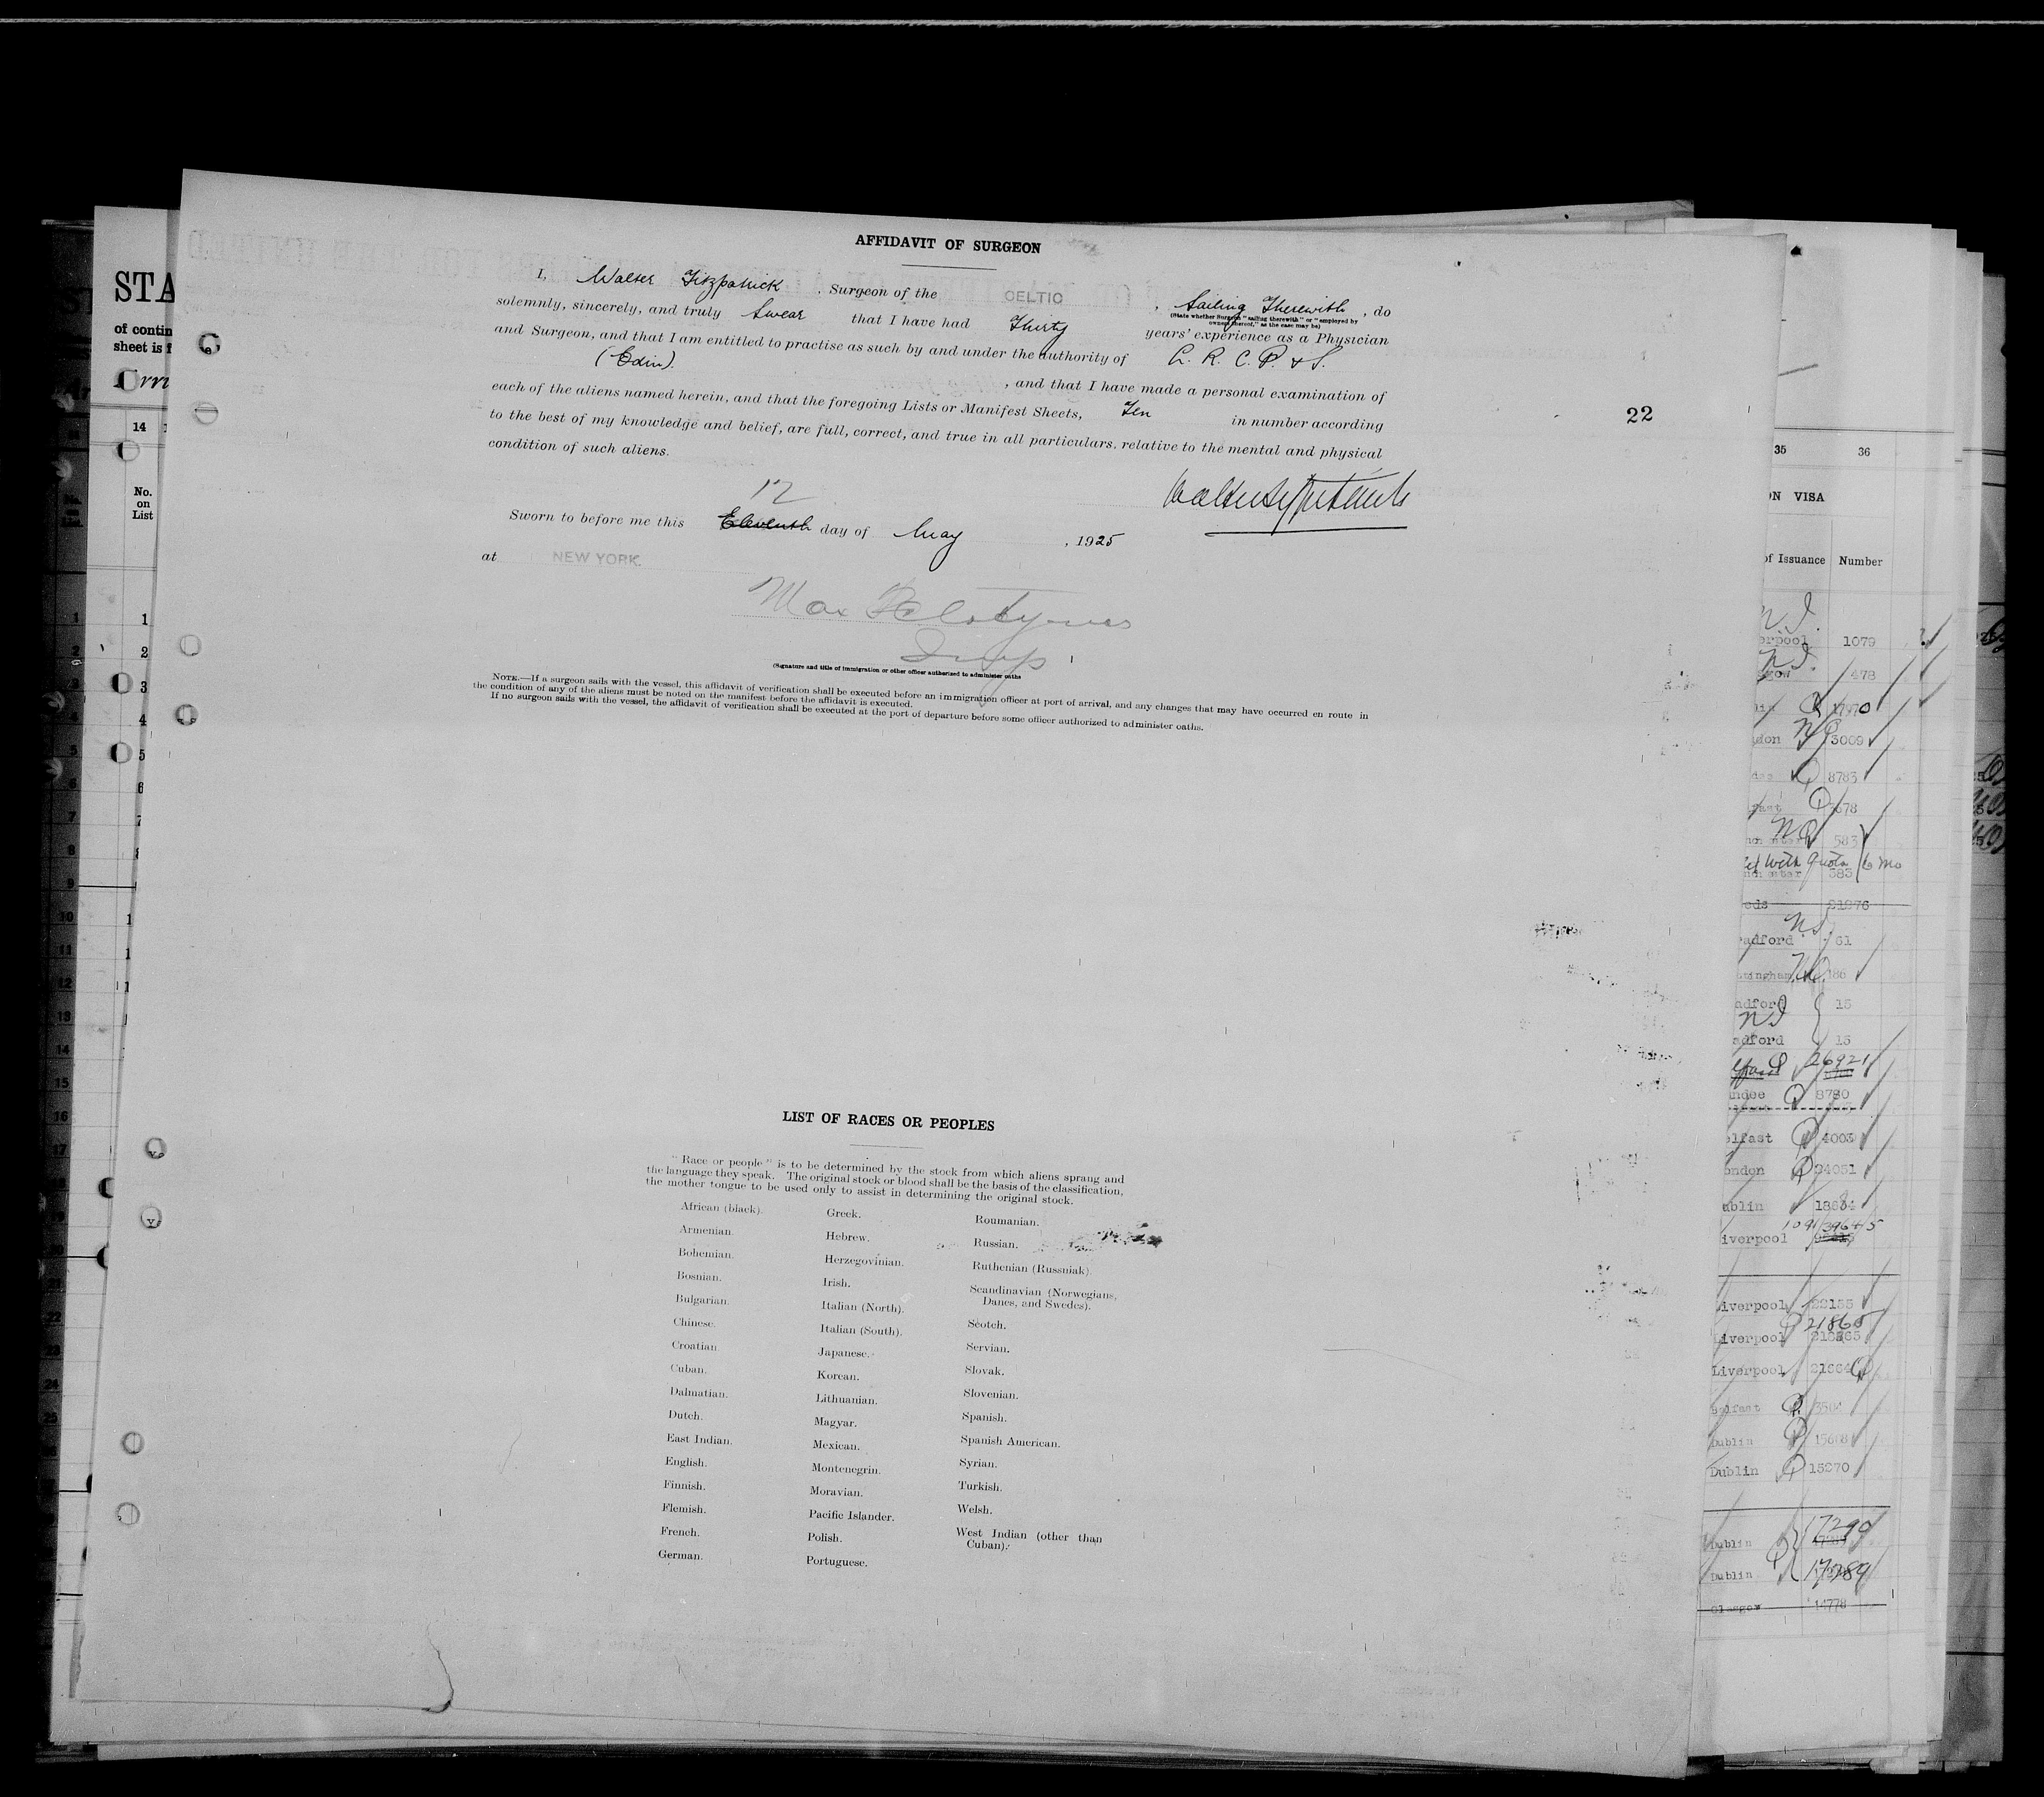 AFFIDAVIT OF SURGEON
I, Walter Fitzpatrick, Surgeon of the CELTIC, Sailing Therewith, do
(State whether Surgeon "sailing therewith" or "employed by
owners thereof," as the case may be)
solemnly, sincerely, and truly Swear that I have had Thirty years' experience as a Physician
and Surgeon, and that I am entitled to practise as such by and under the authority of L. R. C. P. & S.
(Edin). , and that I have made a personal examination of
each of the aliens named herein, and that the foregoing Lists or Manifest Sheets, Ten in number according
to the best of my knowledge and belief, are full, correct, and true in all particulars, relative to the mental and physical
condition of such aliens.
22
12
Sworn to before me this Eleventh day of May, 1925
at NEW YORK.
Max
Insp
(Signature and title of immigration or other officer authorized to administer oaths
NOTE.—If a surgeon sails with the vessel, this affidavit of verification shall be executed before an immigration officer at port of arrival, and any changes that may have occurred en route in
the condition of any of the aliens must be noted on the manifest before the affidavit is executed.
If no surgeon sails with the vessel, the affidavit of verification shall be executed at the port of departure before some officer authorized to administer oaths.
LIST OF RACES OR PEOPLES
"Race or people" is to be determined by the stock from which aliens sprang and
the language they speak. The original stock or blood shall be the basis of the classification,
the mother tongue to be used only to assist in determining the original stock.
African (black).
Armenian.
Bohemian.
Bosnian.
Bulgarian.
Chinese.
Croatian.
Cuban.
Dalmatian.
Dutch.
East Indian.
English.
Finnish.
Flemish.
French.
German.
Greek.
Hebrew.
Herzegovinian.
Irish.
Italian (North).
Italian (South).
Japanese.
Korean.
Lithuanian.
Magyar.
Mexican.
Montenegrin.
Moravian.
Pacific Islander.
Polish.
Portuguese.
Roumanian.
Russian.
Ruthenian (Russniak).
Scandinavian (Norwegians,
Danes, and Swedes).
Scotch.
Servian.
Slovak.
Slovenian.
Spanish.
Spanish American.
Syrian.
Turkish.
Welsh.
West Indian (other than
Cuban).
STA
of contin
sheet is f
14
No.
on
List
1
2
3
4
5
6
35 36
ON VISA
of Issuance Number
erpool 1079
478
don 3009
8783
583
with quota 6 mo
583
eds 21276
adford 61
mingham 186
adford 15
adford 15
26921
ndee 8780
elfast 4003
ondon 24051
ublin
iverpool
iverpool 22155
iverpool 21865
Liverpool 21664
Belfast
Dublin
Dublin 15270
Dublin 17290
Dublin 17289
Glasgow 14778